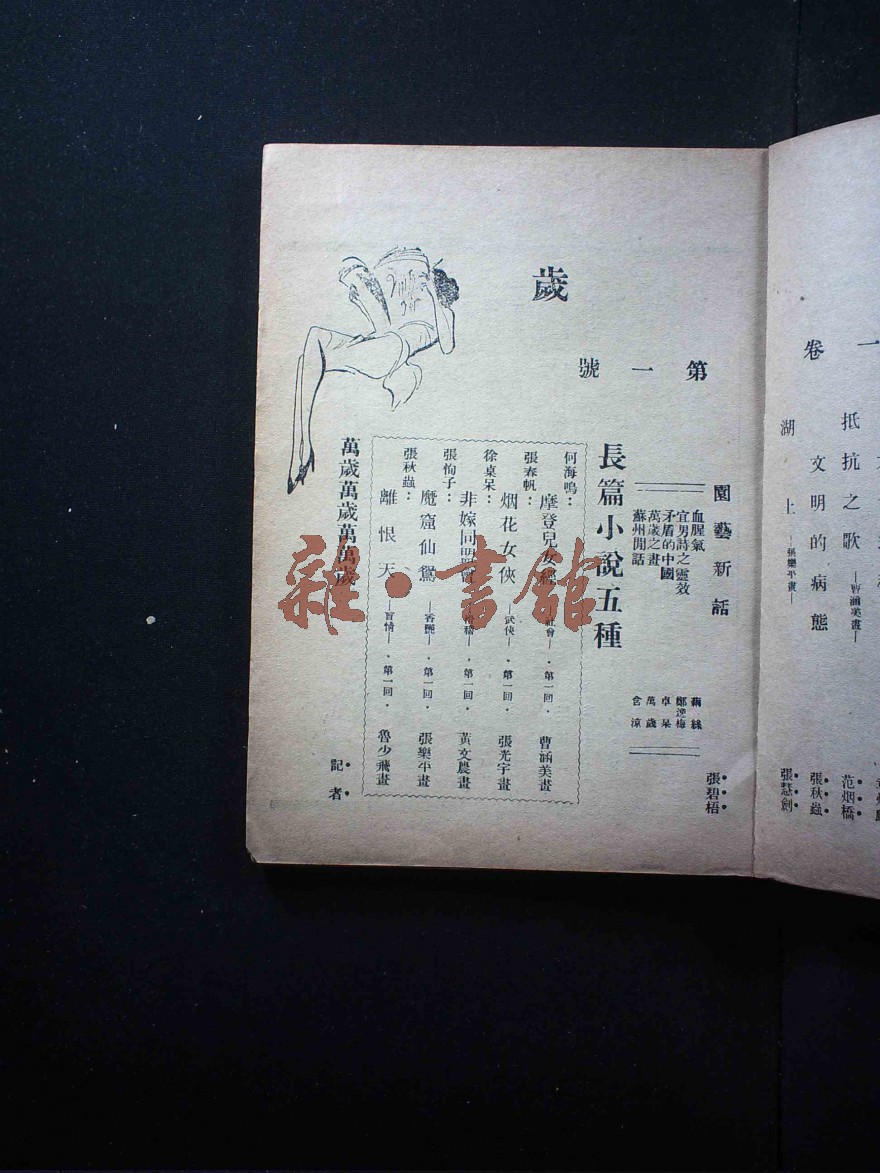 一卷
抵抗之歌
—曹涵美畫—
范烟橋
文明的病態
張秋蟲
湖上
—張樂平畫—
張慧劍
歲
第一號
園藝新話
張碧梧
血腥氣
繭絲
宜男詩之靈效
鄭逸梅
矛盾的中國
卓呆
萬歲之畫
萬歲
蘇州閒話
含涼
長篇小說五種
何海鳴：
摩登兒女經
社會—．第一回．
曹涵美畫
張春帆：
烟花女俠
—武俠—．第一回．
張光宇畫
徐卓呆：
非嫁同盟會
第一回．
黃文農畫
張恂子：
魔窟仙鴛
—香艷—．第一回．
張樂平畫
張秋蟲：
離恨天
—言情—．第一回．
魯少飛畫
萬歲萬歲萬萬歲
記者
雜·書館